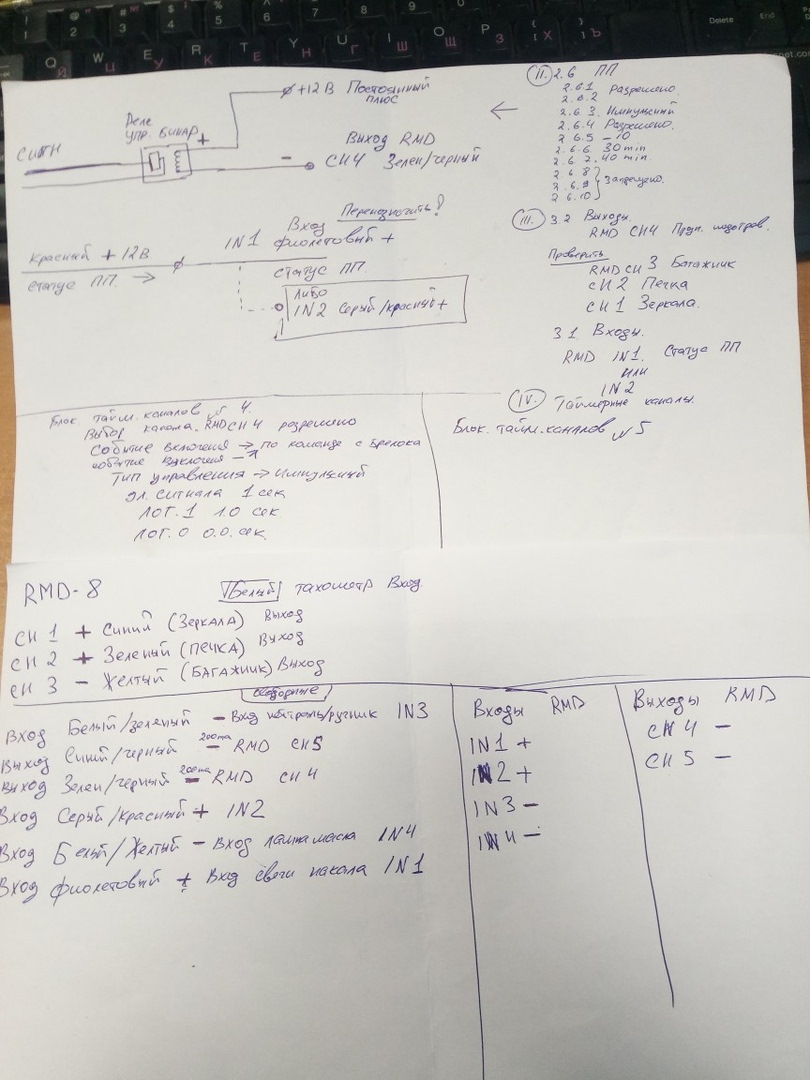 +12В Постоянный
плюс
Реле
упр. БИНАР +
СИГН
Выход RMD
- СН4 Зелен/черный
Переназначить!
Вход
IN1 фиолетовый +
Красный +12В
Статус ПП →
статус ПП.
либо
IN2 Серый/красный +
II. 2.6 ПП
2.6.1 Разрешено.
2.6.2
2.6.3. Импульсный
2.6.4 Разрешено.
2.6.5 - 10
2.6.6. 30 min
2.6.7. 40 min.
2.6.8
2.6.9 Запрещено.
2.6.10
III. 3.2 Выходы.
RMD СН4
Проверить
RMD СН 3 Багажник
СН 2 Печка
СН 1 Зеркала.
3.1 Входы.
RMD IN1. Статус ПП
или
IN2
IV. Таймерные каналы.
Блок. тайм. каналов № 4.
Выбор канала. RMD СН 4 разрешено
Событие включения → По команде с брелока
событие выключения -"-
Тип управления → Импульсный
дл. сигнала 1 сек
ЛОГ. 1 1.0 сек
ЛОГ. 0 0.0. сек.
Блок. тайм. каналов № 5
RMD-8
Белый тахометр Вход.
СН 1 + Синий (Зеркала) Выход
СН 2 + Зеленый (ПЕЧКА) Выход
СН 3 - Желтый (БАГАЖНИК) Выход
Вход Белый/зеленый - Вход нейтраль/ручник IN3
Выход Синий/черный 200ma - RMD СН5
Выход Зелен/черный 200ma - RMD СН4
Вход Серый/красный + IN2
Вход Белый/Желтый - Вход лампа масла IN4
Вход фиолетовый + Вход свечи накала IN1
Входы RMD
IN1 +
IN2 +
IN3 -
IN4 -
Выходы RMD
СН4 -
СН5 -